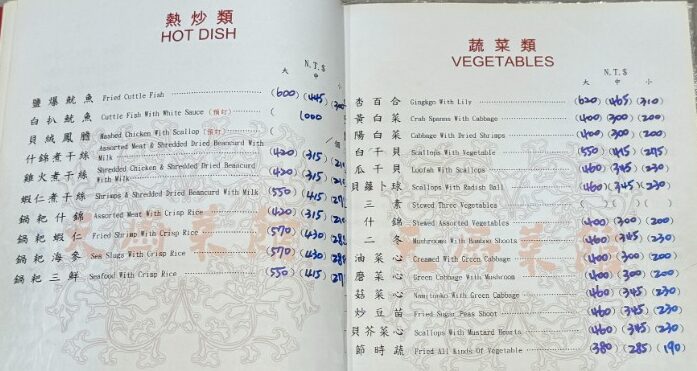 熱炒類
HOT DISH
N.T.$
大 中 小
鹽爆魷魚 Fried Cuttle Fish (600) (445)
白扒魷魚 Cuttle Fish With White Sauce (預訂) ( 1000
貝絨鳳膽 Mashed Chicken With Scallop (預訂)
什錦煮干絲 Assorted Meat & Shredded Dried Beancurd With Milk (420) (315)
雞火煮干絲 Shredded Chicken & Shredded Dried Beancurd With Milk (420) (315)
蝦仁煮干絲 Shrimps & Shredded Dried Beancurd With Milk (550) (415)
鍋粑什錦 Assorted Meat With Crisp Rice (420) (315)
鍋粑蝦仁 Fried Shrimp With Crisp Rice (570) (430)
鍋粑海參 Sea Slugs With Crisp Rice (570) (430)
鍋粑三鮮 Seafood With Crisp Rice (550) (415)
蔬菜類
VEGETABLES
N.T.$
大 中 小
杏百合 Gingkgo With Lily (620) (465) (310)
黃白菜 Crab Spanna With Cabbage (400) (300) (200)
陽白菜 Cabbage With Dried Shrimps (400) (300) (200)
白干貝 Scallops With Vegetable (550) (415) (275)
瓜干貝 Loofah With Scallops (460) (345) (230)
貝蘿卜球 Scallops With Radish Ball (460) (345) (230)
三素 Stewed Three Vegetables ( ) ( ) ( )
什錦 Stewed Assorted Vegetables (400) (300) (200)
二冬 Mushrooms With Bamboo Shoots (460) (345) (230)
油菜心 Creamed With Green Cabbage (400) (300) (200)
磨菜心 Green Cabbage With Mushroom (400) (300) (200)
菇菜心 With Green Cabbage (460) (345) (230)
炒豆苗 Fried Sugar Peas Shoot (460) (345) (230)
貝芥菜心 Scallops With Mustard Hearts (460) (345) (230)
節時蔬 Fried All Kinds Of Vegetable (380) (285) (190)